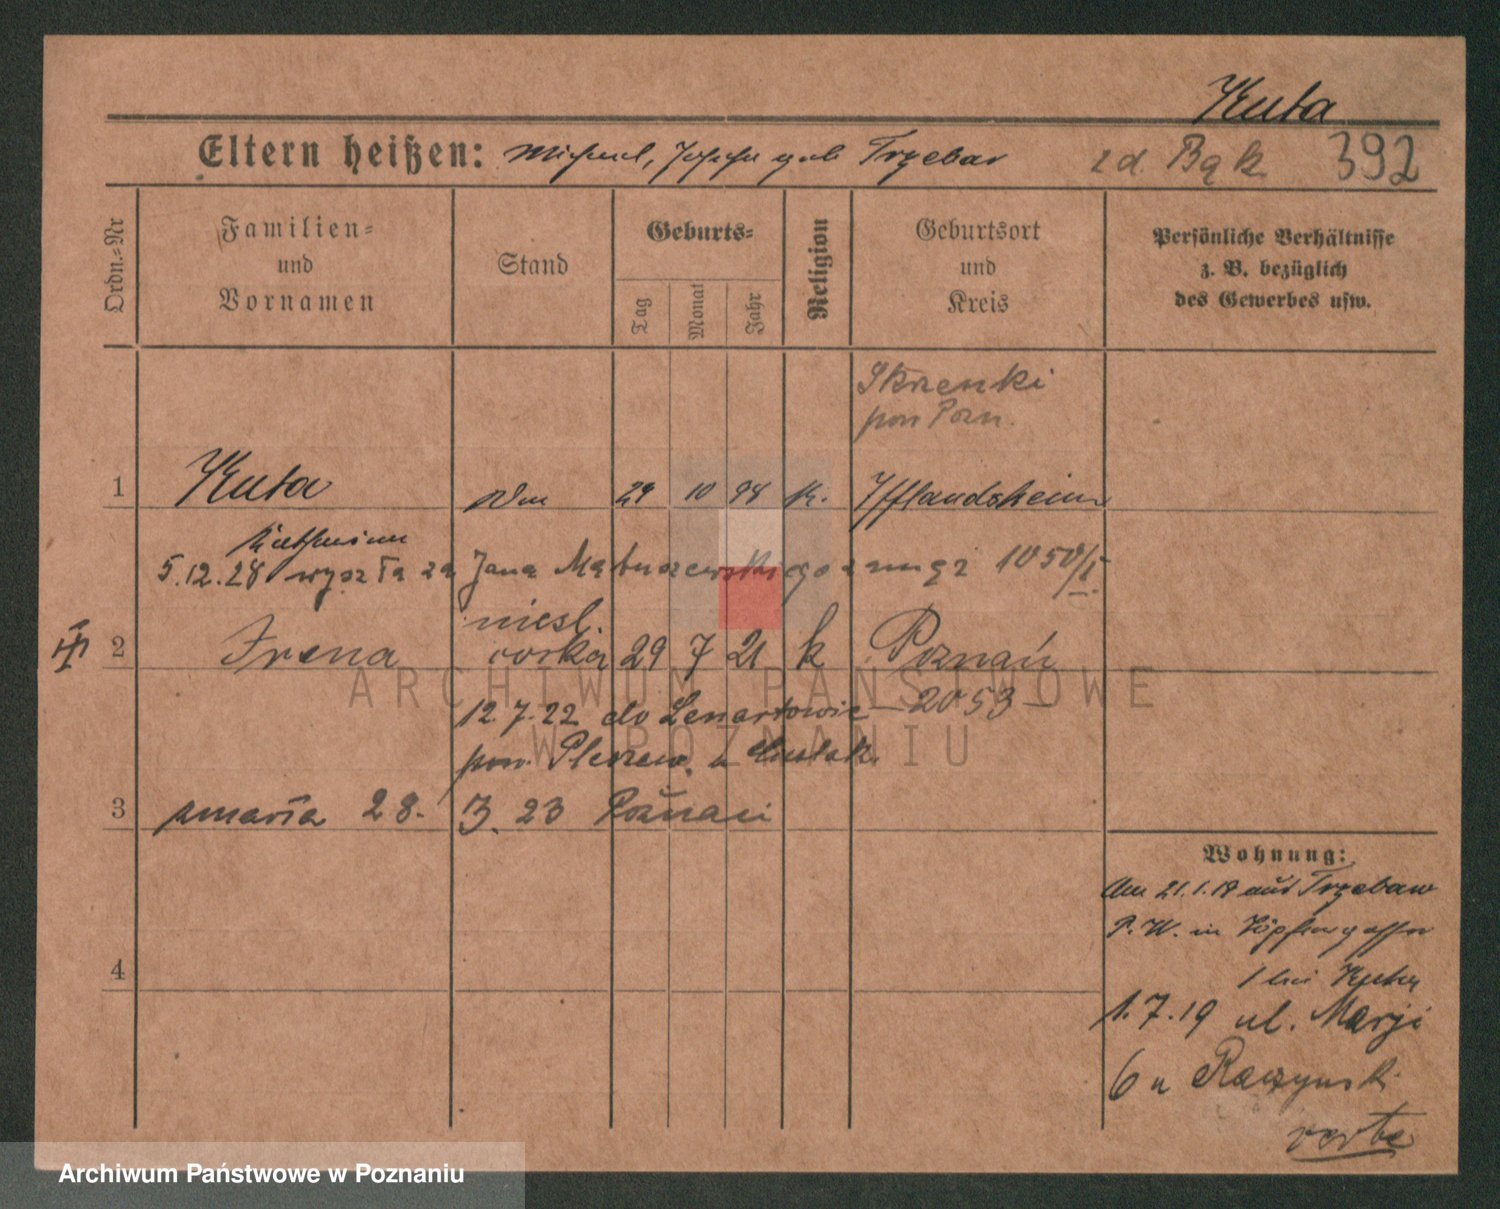 Kuta
Eltern heißen: Michael, Josefa geb Trzebaw z d. Bąk 392
Ordn.-Nr
Familien- und Vornamen
Stand
Geburts-
Tag
Monat
Jahr
Religion
Geburtsort und Kreis
Persönliche Verhältnisse z. B. bezüglich des Gewerbes usw.
Skrzenki
pow Pozn.
1 Kuta 29 10 98 k. Ifflandsheim
Katharina
5.12.28 wyszła za Jana Matuszewskiego zamąz 1050/I.
nieśl.
2 Irena córka 29 7 21 k Poznań
12.7.22 do Lenartowic — 2053 —
pow. Pleszew
3 zmarła 28. 3. 23 Poznań
Wohnung:
Am 21.1.19 aus Trzebaw
P. W. in Töpfergasse
1 bei
1.7.19 ul. Marji
6 u Raczynski
verte
4
ARCHIWUM PAŃSTWOWE
W POZNANIU
Archiwum Państwowe w Poznaniu